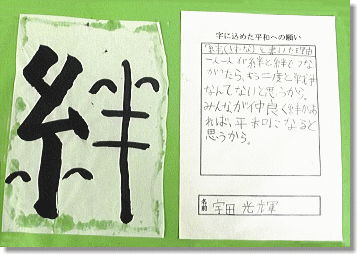 絆
字に込めた平和への願い
「絆(きずな)」と書いた理由
一人一人が絆と絆でつな
がったら、もう二度と戦争
なんてないと思うから。
みんなが仲良く絆があ
れば、平和になると
思うから。
名前 宇田 光輝